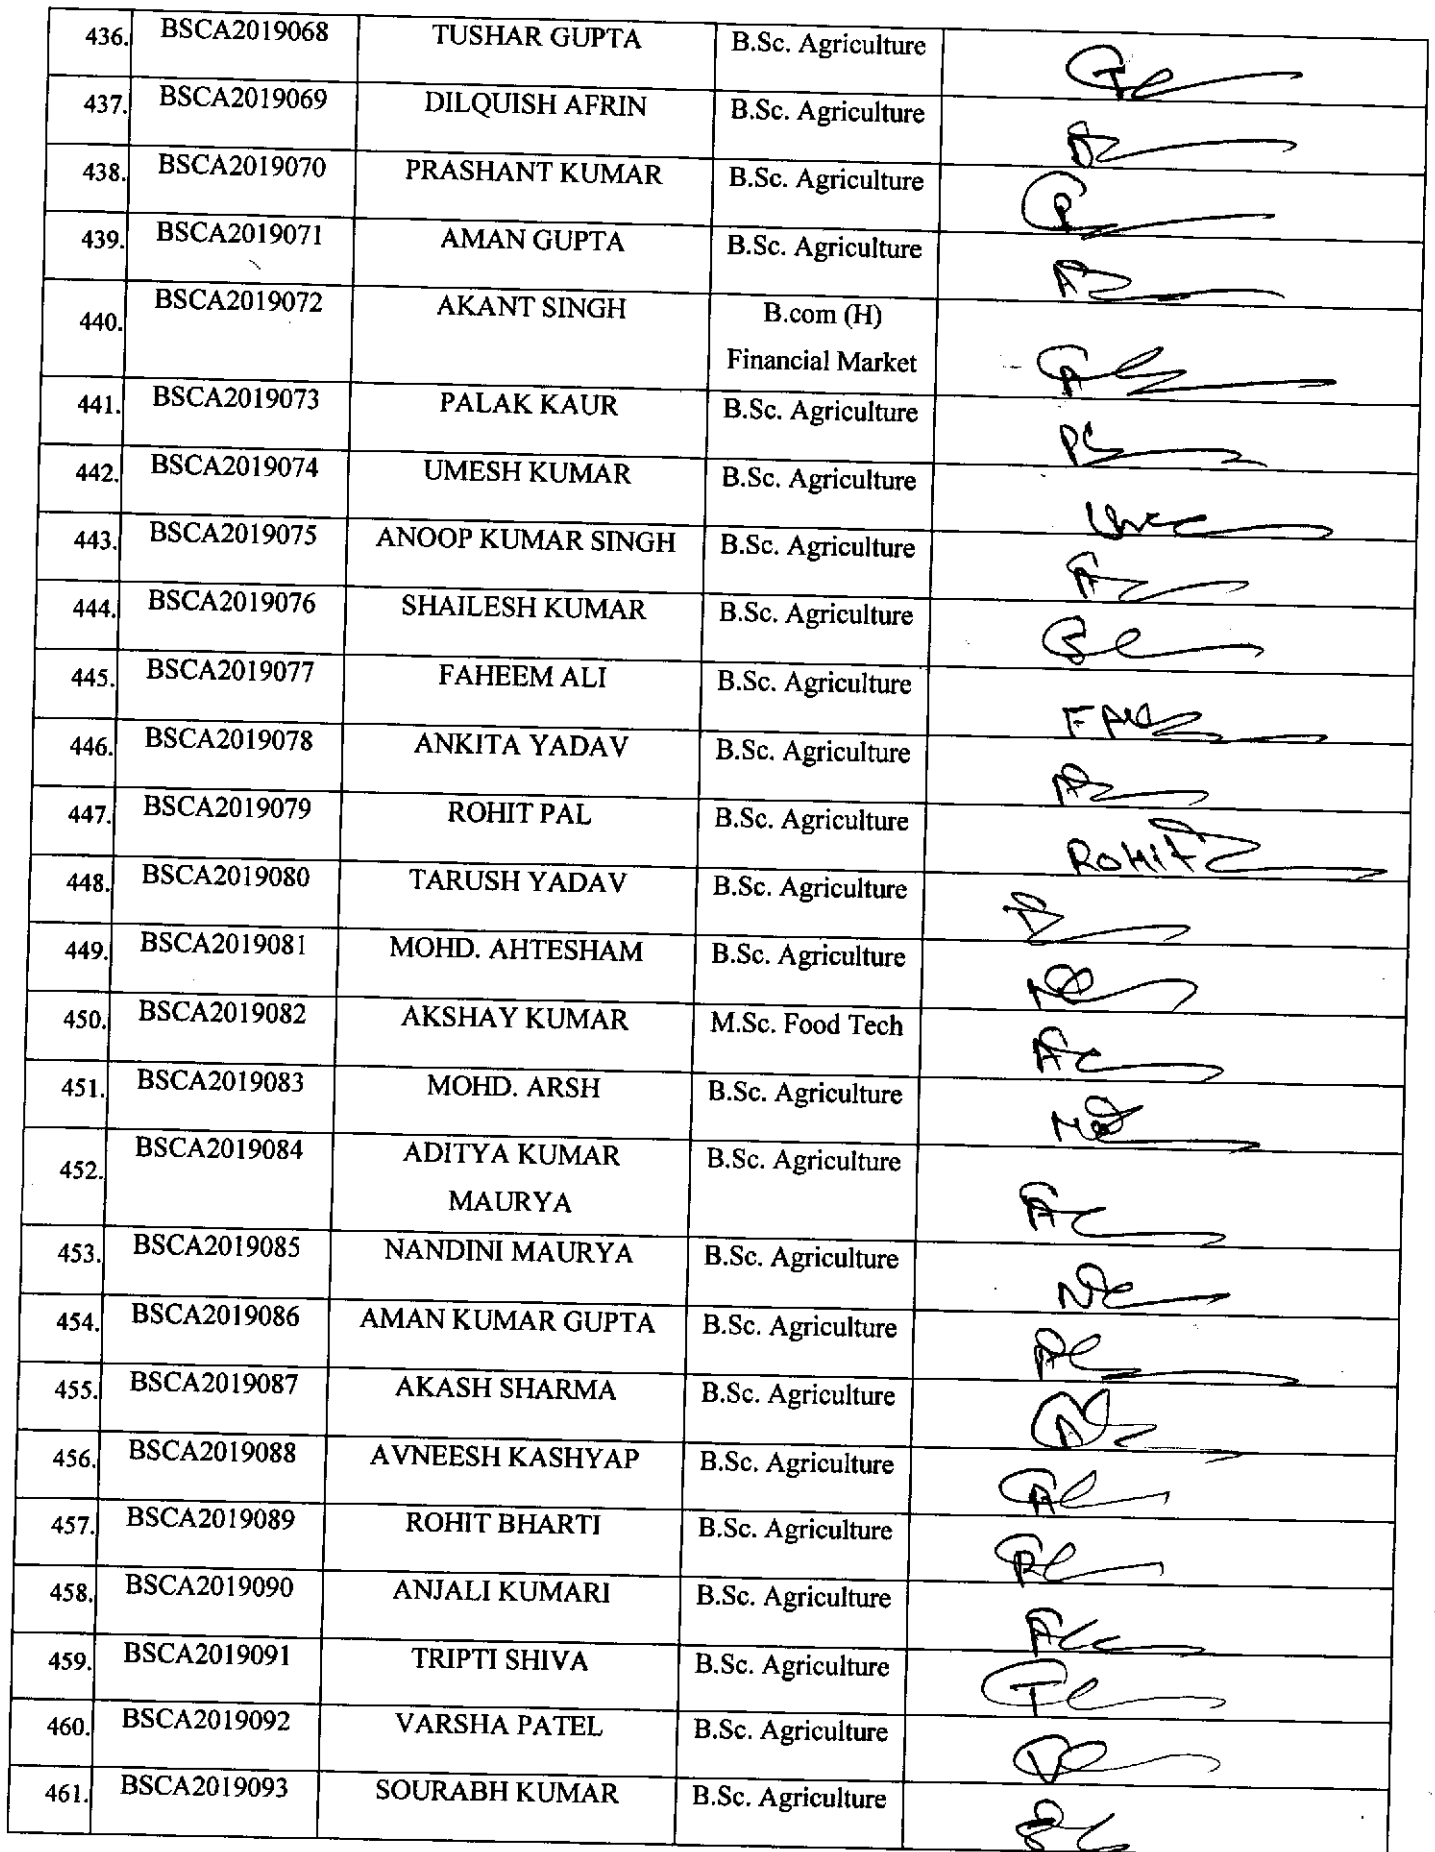 436. BSCA2019068 TUSHAR GUPTA B.Sc. Agriculture
437. BSCA2019069 DILQUISH AFRIN B.Sc. Agriculture
438. BSCA2019070 PRASHANT KUMAR B.Sc. Agriculture
439. BSCA2019071 AMAN GUPTA B.Sc. Agriculture
440. BSCA2019072 AKANT SINGH B.com (H)
Financial Market
441. BSCA2019073 PALAK KAUR B.Sc. Agriculture
442. BSCA2019074 UMESH KUMAR B.Sc. Agriculture
443. BSCA2019075 ANOOP KUMAR SINGH B.Sc. Agriculture
444. BSCA2019076 SHAILESH KUMAR B.Sc. Agriculture
445. BSCA2019077 FAHEEM ALI B.Sc. Agriculture
446. BSCA2019078 ANKITA YADAV B.Sc. Agriculture
447. BSCA2019079 ROHIT PAL B.Sc. Agriculture ROHIT
448. BSCA2019080 TARUSH YADAV B.Sc. Agriculture
449. BSCA2019081 MOHD. AHTESHAM B.Sc. Agriculture
450. BSCA2019082 AKSHAY KUMAR M.Sc. Food Tech
451. BSCA2019083 MOHD. ARSH B.Sc. Agriculture
452. BSCA2019084 ADITYA KUMAR B.Sc. Agriculture
MAURYA
453. BSCA2019085 NANDINI MAURYA B.Sc. Agriculture
454. BSCA2019086 AMAN KUMAR GUPTA B.Sc. Agriculture
455. BSCA2019087 AKASH SHARMA B.Sc. Agriculture
456. BSCA2019088 AVNEESH KASHYAP B.Sc. Agriculture
457. BSCA2019089 ROHIT BHARTI B.Sc. Agriculture
458. BSCA2019090 ANJALI KUMARI B.Sc. Agriculture
459. BSCA2019091 TRIPTI SHIVA B.Sc. Agriculture
460. BSCA2019092 VARSHA PATEL B.Sc. Agriculture
461. BSCA2019093 SOURABH KUMAR B.Sc. Agriculture